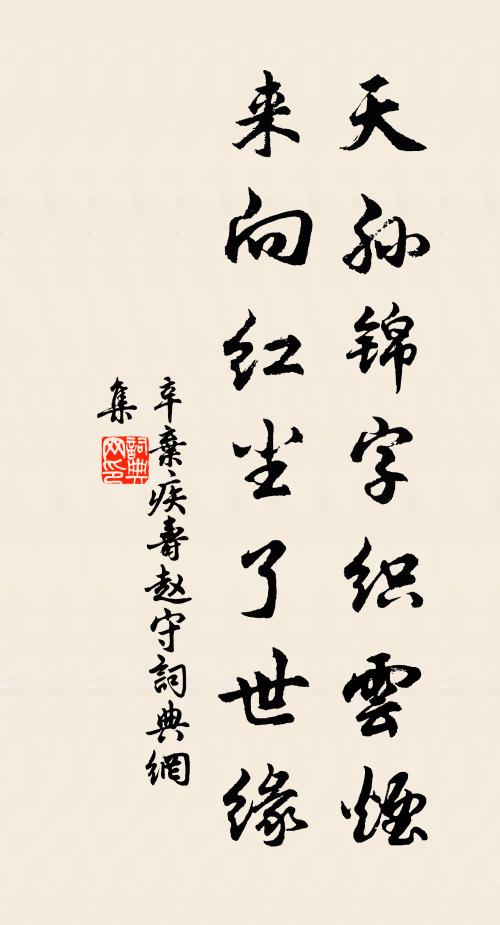 天孙锦字织雲煙
来向红尘了世缘
辛棄疾壽赵守詞典網
集
詞典网印